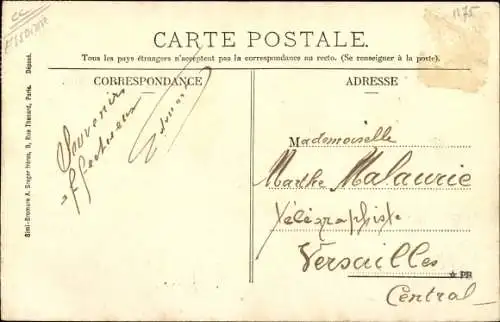 CC
1175
CARTE POSTALE.
Tous les pays étrangers n'acceptent pas la correspondance au recto. (Se renseigner à la poste).
CORRESPONDANCE
ADRESSE
Souvenirs
affectueux
Mademoiselle
Marthe Malaurie
Télégraphiste
Versailles
★ PR
Central
Simi-Bromure A. Breger frères, 9, Rue Thénard, Paris. Déposé.